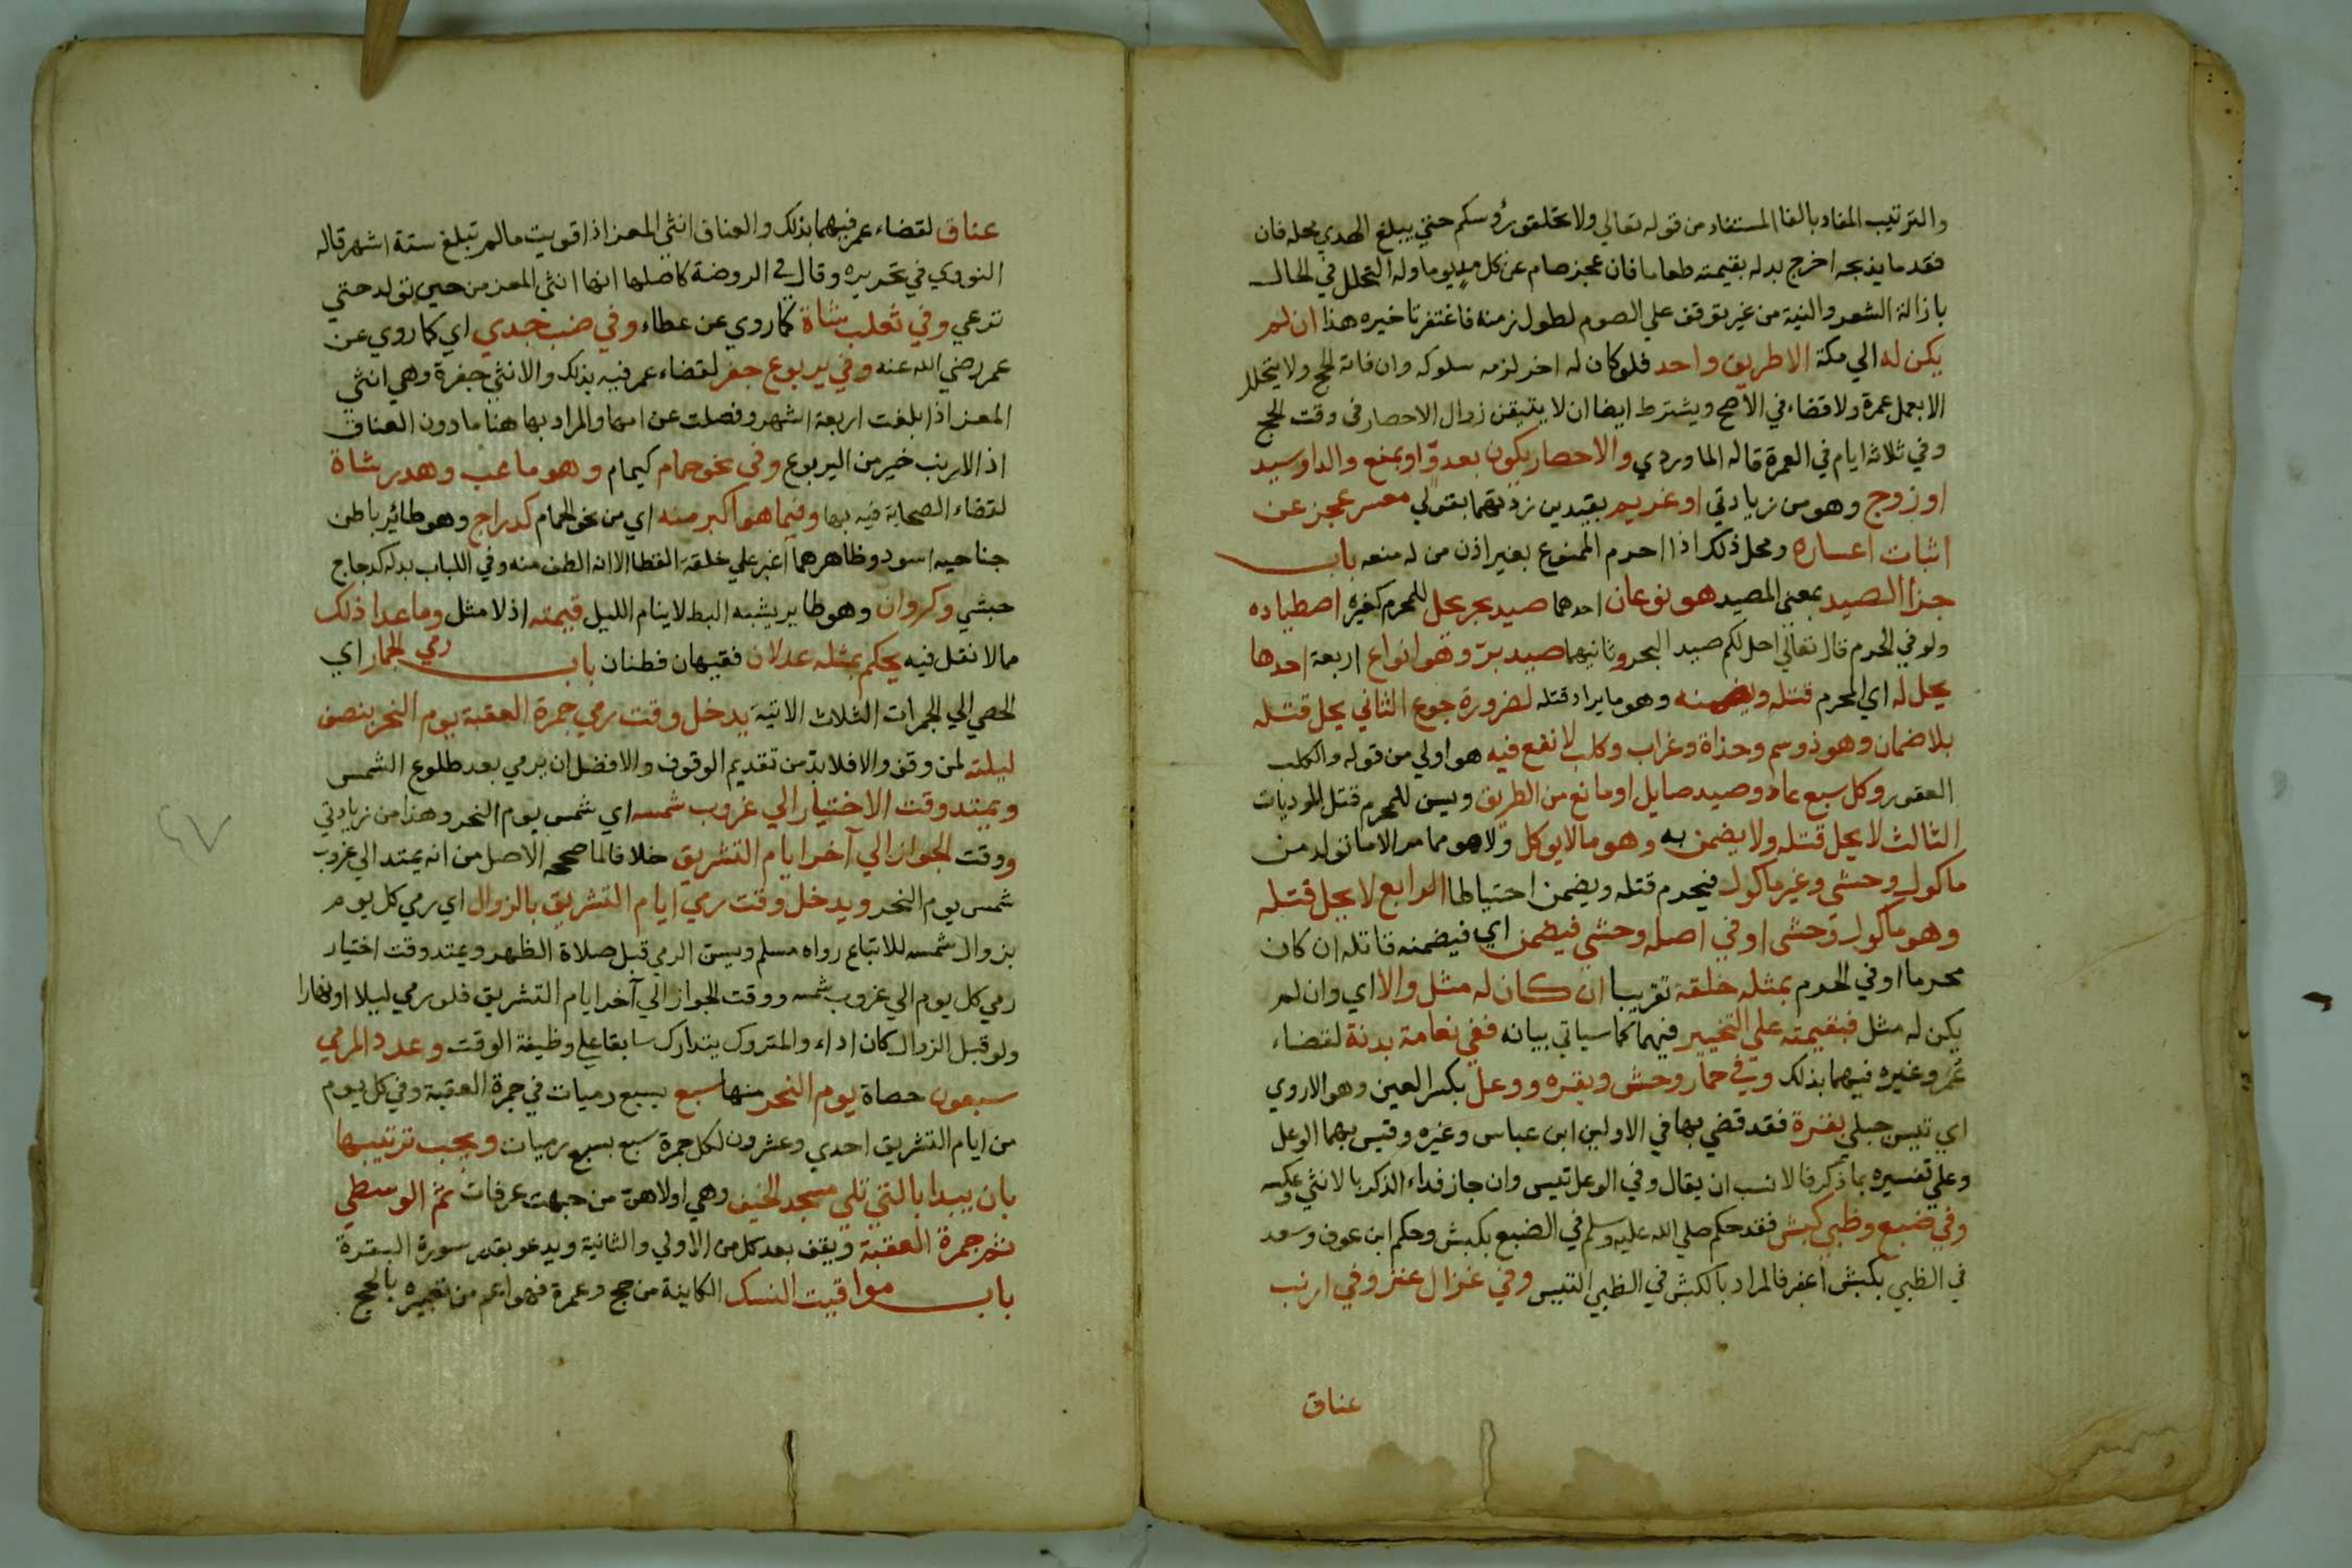 والترتيب المفاد بالفا المستفاد من قوله تعالي ولا تحلقو رؤسكم حتي يبلغ الهدي محله فان
فقد ما يذبحه اخرج بدله بقيمته طعاما فان عجز صام عن كل مد يوما وله التحلل في الحال
بازالة الشعر والنية من غير توقف علي الصوم لطول زمنه فاغتفر تاخيره هذا ان لم
يكن له الي مكة الا طريق واحد فلو كان له اخر لزمه سلوكه وان فاته الحج ولا يتحلل
الا بعمل عمرة ولا قضاء في الاصح ويشترط ايضا ان لا يتيقن زوال الاحصار في وقت الحج
وفي ثلاثه ايام في العمرة قاله الماوردي والاحصار يكون بعدوّ او بمنع والد او سيد
او زوج وهو من زيادتي او غريم بقيدين زدتهما بقولي معسر عجز عن
اثبات اعساره ومحل ذلك اذا احرم الممنوع بغير اذن من له منعه باب
جزا الصيد بمعني المصيد هو نوعان احدهما صيد بحر يحل للمحرم كغيره اصطياده
ولو في الحرم قال تعالي احل لكم صيد البحر وثانيهما صيد برّ وهو انواع اربعة احدها
يحل له اي المحرم قتله ويضمنه وهو ما يراد قتله لضرورة جوع الثاني يحل قتله
بلا ضمان وهو ذو سم وحداة وغراب وكلب لا نفع فيه هو اولي من قوله والكلب
العقور وكل سبع عاد وصيد صايل او مانع من الطريق ويسن للمحرم قتل الموديات
الثالث لا يحل قتله ولا يضمن به وهو ما لا يوكل ولا هو مما مر الا ما تولد من
ماكول وحشي وغير ماكول فيحرم قتله ويضمن احتياطا الرابع لا يحل قتله
وهو ماكول وحشي او في اصله وحشي فيضمن اي فيضمنه قاتله ان كان
محرما او في الحرم بمثله خلقة تقريبا ان كان له مثل والا اي وان لم
يكن له مثل فبقيمته علي التخيير فيهما كما سياتي بيانه ففي نعامة بدنة لقضاء
عمر وغيره فيهما بذلك وفي حمار وحش وبقره ووعل بكسر العين وهو الاروي
اي تيس جبلي بقرة فقد قضي بها في الاولين ابن عباس وغيره وقيس بهما الوعل
وعلي تفسيره بما ذكر فالانسب ان يقال وفي الوعل تيس وان جاز فداء الذكر بالانثي وعكسه
وفي ضبع وظبي كبش فقد حكم صلي الله عليه وسلم في الضبع بكبش وحكم ابن عوف وسعد
في الظبي بكبش اعفر فالمراد بالكبش في الظبي التيس وفي غزال عنز وفي ارنب
عناق
عناق لقضاء عمر فيهما بذلك والعناق انثي المعز اذا قويت ما لم تبلغ ستة اشهر قاله
النووي في تحريره وقال في الروضة كاصلها انها انثي المعز من حين تولد حتي
ترعي وفي ثعلب شاة كما روي عن عطاء وفي ضب جدي اي كما روي عن
عمر رضي الله عنه وفي يربوع جفر لقضاء عمر فيه بذلك والانثي جفرة وهي انثي
المعز اذا بلغت اربعة اشهر وفصلت عن امها والمراد بها هنا ما دون العناق
اذ الارنب خير من اليربوع وفي نحو حمام كيمام وهو ما عب وهدر شاة
لقضاء الصحابة فيه بها وفيما هو اكبر منه اي من نحو الحمام كدراج وهو طائر باطن
جناحيه اسود وظاهرهما اغبر علي خلقة القطا الا انه الطف منه وفي اللباب بدله كدجاج
حبشي وكروان وهو طاير يشبه البط لا ينام الليل قيمته اذ لا مثل وما عدا ذلك
مما لا نقل فيه يحكم بمثله عدلان فقيهان فطنان باب رمي الجمار اي
الحصي الي الجمرات الثلاث الاتية يدخل وقت رمي جمرة العقبة يوم النحر بنصف
ليلته لمن وقف والا فلا بدّ من تقديم الوقوف والافضل ان يرمي بعد طلوع الشمس
ويمتد وقت الاختيار الي غروب شمسه اي شمس يوم النحر وهذا من زيادتي
ووقت الجواز الي آخر ايام التشريق خلافا لما صححه الاصل من انه يمتد الي غروب
شمس يوم النحر ويدخل وقت رمي ايام التشريق بالزوال اي رمي كل يوم
بزوال شمسه للاتباع رواه مسلم ويسن الرمي قبل صلاة الظهر ويمتد وقت اختيار
رمي كل يوم الي غروب شمسه ووقت الجواز الي آخر ايام التشريق فلو رمي ليلا او نهارا
ولو قبل الزوال كان اداء والمتروك يتدارك سابقا علي وظيفة الوقت وعدد المرمي
سبعون حصاة يوم النحر منها سبع بسبع رميات في جمرة العقبة وفي كل يوم
من ايام التشريق احدي وعشرون لكل جمرة سبع بسبع رميات ويجب ترتيبها
بان يبدا بالتي تلي مسجد الخيف وهي اولاهن من جهت عرفات ثم الوسطي
ثم جمرة العقبة ويقف بعد كل من الاولي والثانية ويدعو بقدر سورة البقرة
باب مواقيت النسك الكاينة من حج وعمرة فهو اعم من تعبيره بالحج
٤٧